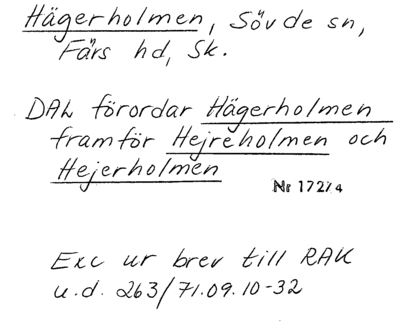 Hägerholmen, Sövde sn,
Färs hd, Sk.
DAL förordar Hägerholmen
framför Hejreholmen och
Hejerholmen
Nr 172/4
Exc ur brev till RAK
u.d. 263/71.09.10-32